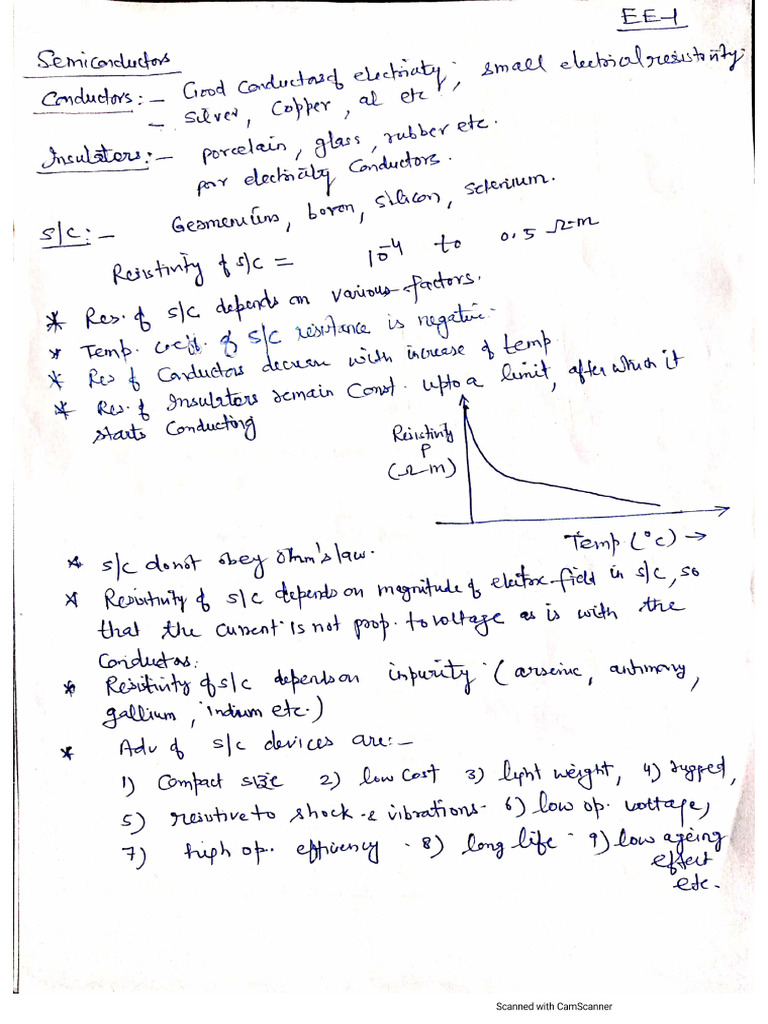 EE-1
Semiconductors
Conductors:- Good Conductors of electricity; small electrical resistivity.
- silver, Copper, al etc
Insulators:- porcelain, glass, rubber etc.
par electricity Conductors.
S/C:- Geomenium, boron, silicon, selenium.
Resistivity of S/C = 10⁻⁴ to 0.5 Ω-m
* Res. of S/C depends on various factors.
* Temp. coeff. of S/C resistance is negative.
* Res of Conductors decrease with increase of temp.
* Res. of Insulators remain Const. upto a limit, after which it
starts Conducting
Resistivity
ρ
(Ω-m)
Temp (°c) →
* S/C donot obey ohm's law.
* Resistivity of S/C depends on magnitude of electric field in S/C, so
that the current is not prop. to voltage as is with the
Conductors.
* Resistivity of S/C depends on impurity (arsenic, antimony,
gallium, indium etc.)
* Adv of S/C devices are:-
1) Compact size 2) low cost 3) light weight, 4) rugged,
5) resistive to shock & vibrations. 6) low op. voltage,
7) high op. efficency. 8) long life. 9) low ageing
effect
etc.
Scanned with CamScanner